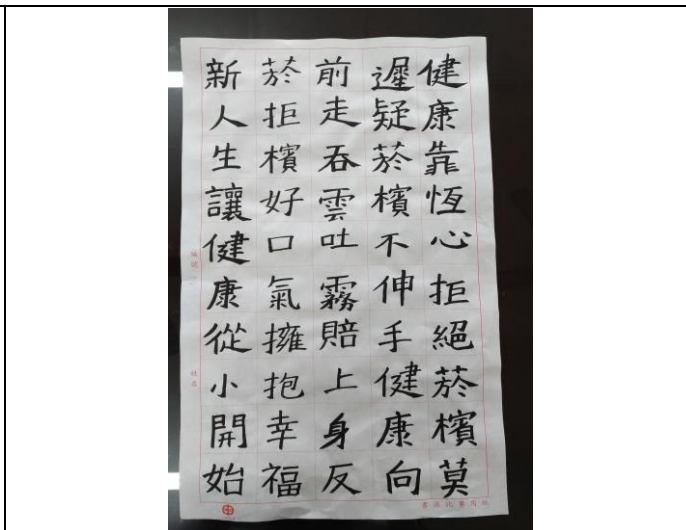 健康靠恆心拒絕菸檳莫
遲疑菸檳不伸手健康向
前走吞雲吐霧賠上身反
菸拒檳好口氣擁抱幸福
新人生讓健康從小開始